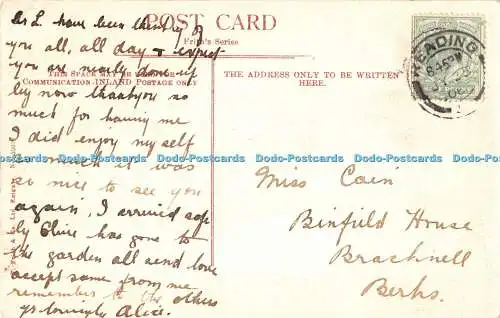 POST CARD
Frith's Series
THIS SPACE MAY BE USED FOR
COMMUNICATION-INLAND POSTAGE ONLY
THE ADDRESS ONLY TO BE WRITTEN
HERE.
READING
8.45PM
L have been thinking of
you all, all day & expect
you are nearly done up
by now thankyou so
much for having me
I did enjoy my self
so much it was
so nice to see you
again, I arrived safe
ly has gone to
the garden all send love
accept same from me
remember to the others
yr lovingly Alice.
Miss Cain
Binfield House
Bracknell
Berks.
Dodo-Postcards Dodo-Postcards Dodo-Postcards Dodo-Postcards Dodo-Postcards